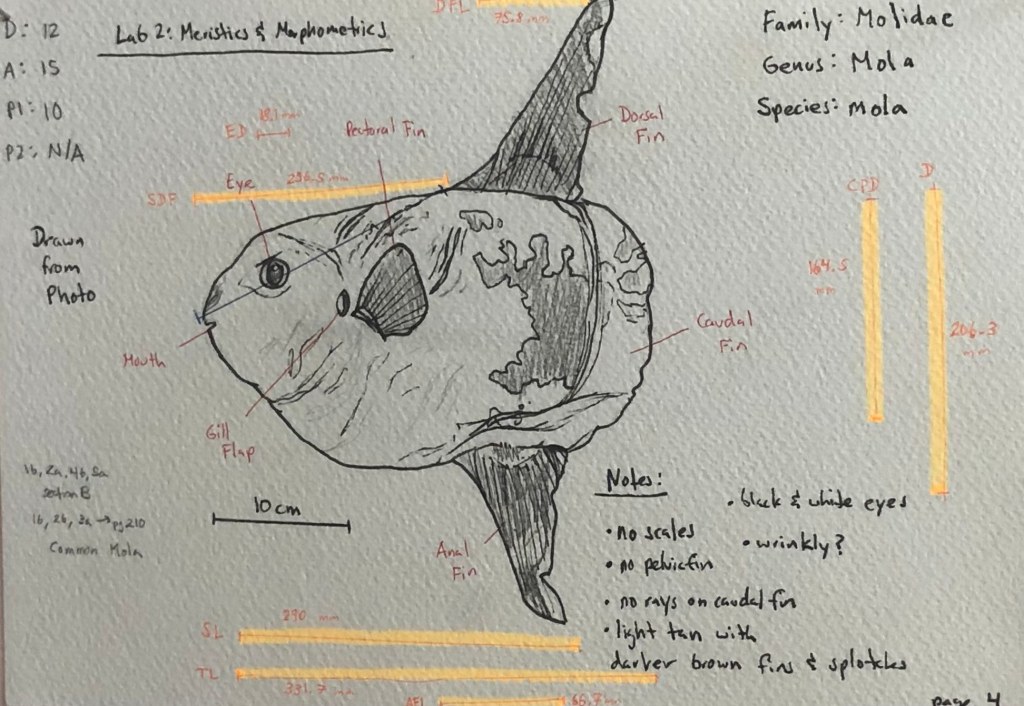 DFL
75.8 mm
D: 12
A: 15
P1: 10
P2: N/A
Lab 2: Meristics & Morphometrics
Family: Molidae
Genus: Mola
Species: mola
ED
18.1 mm
Pectoral Fin
Dorsal
Fin
SDF
Eye
296.5 mm
CPD
D
Drawn
from
Photo
164.5
mm
206.3
mm
Mouth
Caudal
Fin
Gill
Flap
1b, 2a, 4b, 5a
section B
1b, 2b, 3a → pg 210
Common Mola
10 cm
Anal
Fin
Notes:
• no scales
• no pelvic fin
• no rays on caudal fin
• light tan with
darker brown fins & splotches
• black & white eyes
• wrinkly?
SL
290 mm
TL
331.7 mm
AFL
66.7 mm
page 4